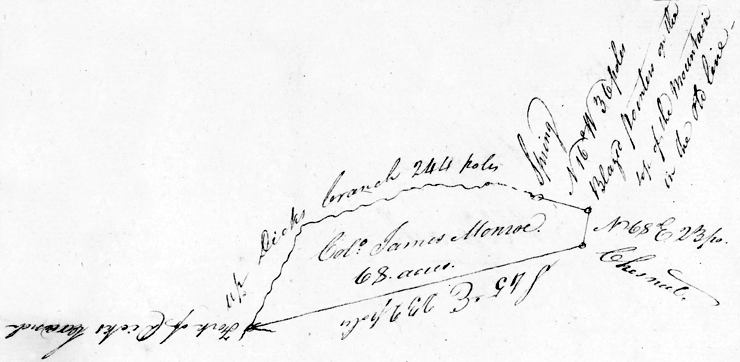 up Dicks branch 244 poles
Spring
N 16° W 36 poles
Blazd pointers on the
top of the Mountain
in the Old line
N 68 E 23 po.
Chesnut.
Col.o James Monroe.
68. acres.
S 45 E 232 poles
Fork of Dicks branch